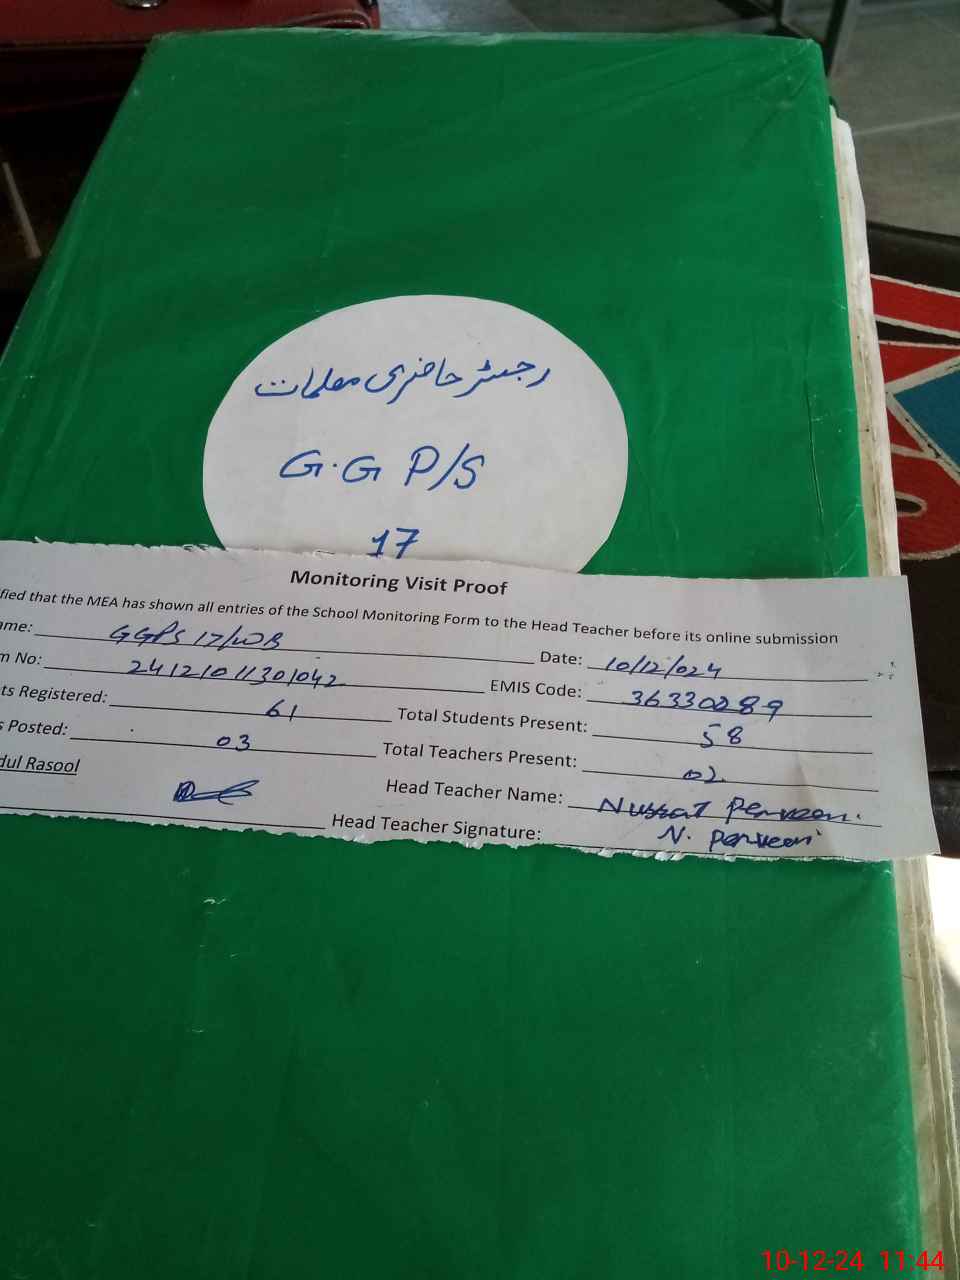 رجسٹر حاضری معلمات
G.G P/S
17
Monitoring Visit Proof
fied that the MEA has shown all entries of the School Monitoring Form to the Head Teacher before its online submission
ame: GGPS 17/WB Date: 10/12/024
m No: 24121011301042 EMIS Code: 36330289
ts Registered: 61 Total Students Present: 58
s Posted: 03 Total Teachers Present: 02
dul Rasool Head Teacher Name: Nussrat Perveen.
Head Teacher Signature: N. Perveen
10-12-24 11:44